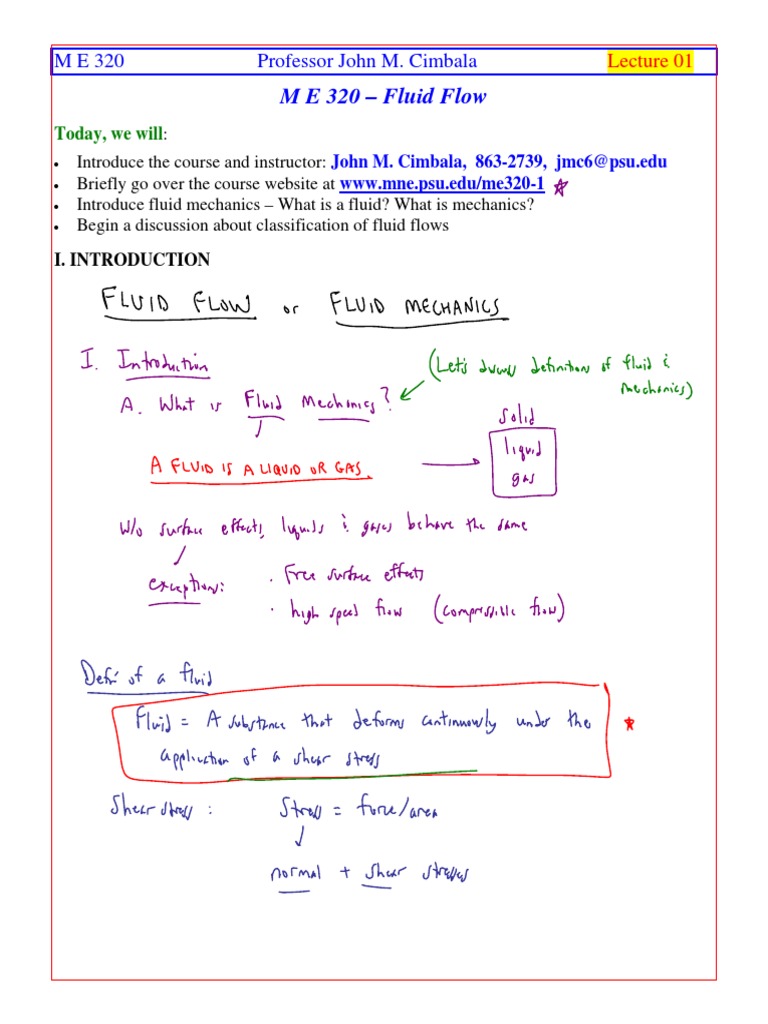 M E 320 Professor John M. Cimbala Lecture 01
M E 320 – Fluid Flow
Today, we will:
• Introduce the course and instructor: John M. Cimbala, 863-2739, jmc6@psu.edu
• Briefly go over the course website at www.mne.psu.edu/me320-1
• Introduce fluid mechanics – What is a fluid? What is mechanics?
• Begin a discussion about classification of fluid flows
I. INTRODUCTION
FLUID FLOW or FLUID MECHANICS
I. Introduction
(Let's discuss definition of fluid & mechanics)
A. What is Fluid Mechanics?
solid
liquid
gas
A FLUID IS A LIQUID OR GAS.
W/o surface effects, liquids & gases behave the same
exceptions: • Free surface effects
• high speed flow (compressible flow)
Def'n of a fluid
Fluid = A substance that deforms continuously under the
application of a shear stress
Shear stress: Stress = force/area
normal + shear stresses